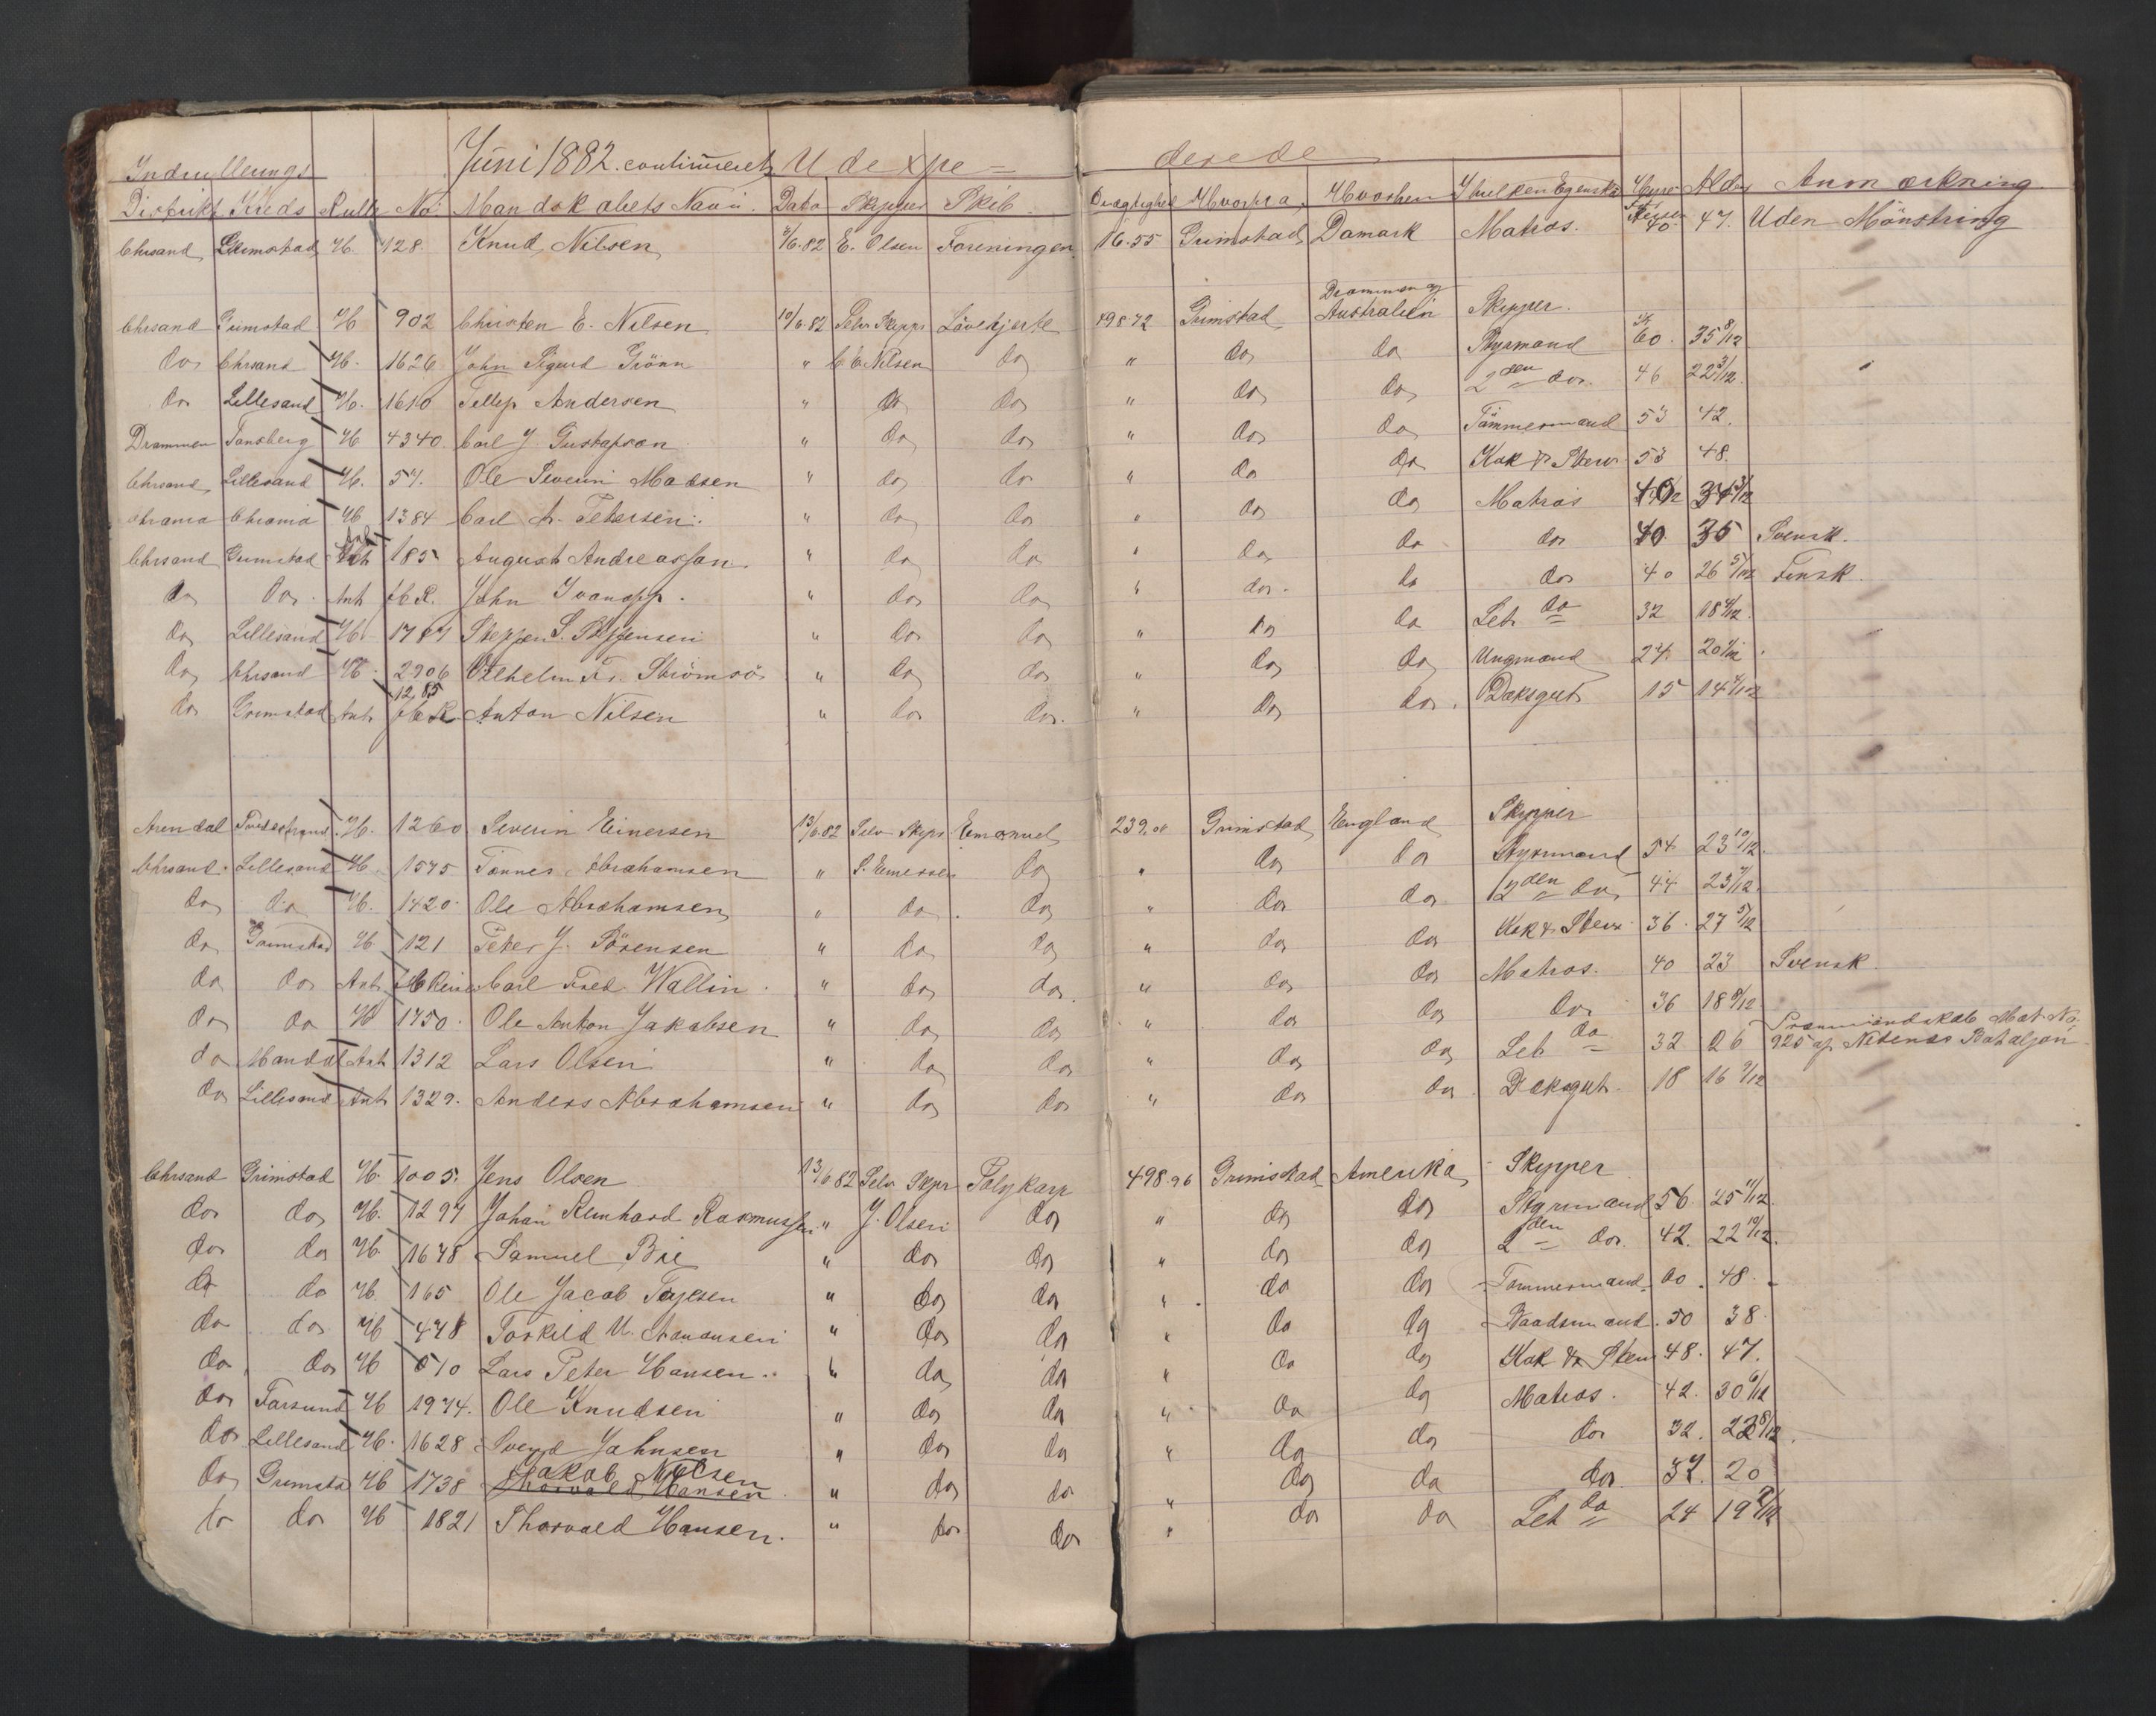 Juni 1882. continueret Udexpe = derede
Indrullerings
Distrikt Kreds Rulle No: Mandskabets Navn. Dato Skippers Skib. Drægtighed Hvorfra, Hvorhen I hvilken Egenskab Hyre Alder Anmærkning.
Chrsand Grimstad H. 128. Knud Nilsen 9/6.82 E. Olsen Foreningen 16.55 Grimstad Damark Matros. 40. 47. Uden Mönstring
Drammen og
Chrsand Grimstad H 902 Christen E. Nilsen 10/6.82 Selv Skippr Lövehjerte 498.72 Grimstad Australien Skipper.
do Chrsand H. 1626 John Sigurd Grönn " C E Nilsen do " do do Styrmand 60. 35 8/12
do Lillesand H. 1610 Tellef Andersen " do do " do do 2den do. 46 22 3/12.
Drammen Tønsberg H 4340. Carl J. Gustafson " do do " do do Tömmermand 53 42.
Chrsand Lillesand H. 57. Ole Severin Madsen " do do " do do Kok & Stew. 53 48.
Chrania Chrania H 1384 Carl A. Petersen. " do do " do do Matros 40 34 3/12
Chrsand Grimstad Anh 185 August Andreassson. " do do " do do do 40 35 Svensk.
do do. Anh fbR. John Ivanoff. " do do " do. do do 40 26 5/12 Finsk.
do Lillesand H. 1787 Steffen S. Steffensen " do do " do do Let do 32 18 4/12.
do Chrsand H. 2906 Vilhelm Fr. Strömsö " do do " do do Ungmand 24. 20 1/12.
12,85
do Grimstad Anh fbR. Anton Nilsen " do do. " do do. Dæksgut 15 14 9/12
Arendal Tvedestrand H. 1260 Severin Einersen 13/6.82 Selv Skippr Emanuel 239.08 Grimstad England Skipper
Chrsand. Lillesand H. 1575 Tönnes Abrahamsen " S. Einersen do " do do Styrmand 54 23 10/12.
do do H. 1420. Ole Abrahamsen " do. do " do do 2den do 44 23 7/12.
do Grimstad H 121 Peter J. Sörensen " do do " do do Kok & Stew. 36. 27 5/12
do do Anh Carl Fred. Wallin. " do do. " do do Matros. 40 23 Svensk.
do do H 1750. Ole Anton Jakobsen " do do " do do do 36 18 9/12.
do Mandal Anh 1312 Lars Olsen " do do " do do Let do 32 26 Mat. No
925 af Nedenes Bataljon.
do Lillesand Anh 1329. Anders Abrahamsen " do do " do do Dæksgut. 18 16 9/12
Chrsand Grimstad H. 1005. Jens Olsen 13/6.82 Selv Skippr Polykarp 498.96 Grimstad Amerika Skipper
do do H. 1297 Johan Reinhard Rasmussen " J. Olsen do " do do Styrmand 56. 25 11/12.
do do H. 1678 Samuel Bie " do do " do do 2den do. 42. 22 10/12.
do do H. 165 Ole Jacob Tajesen " do do " do do Tømmermand 60. 48.
do do H 478 Torkild M. Aanonsen " do do " do do Baadsmand. 50 38.
do. do H 510 Lars Peter Hansen. " do do " do do Kok & Stew 48. 47.
do Farsund H 1974. Ole Knudsen " do do " do do Matros. 42. 30 6/12
do Lillesand H. 1628 Svend Johnsen " do do " do do do 32. 22 8/12.
Jakob Nilsen
do Grimstad H 1738 Thorvald Hansen. " do do " do do do. 37. 20
do do H 1821 Thorvald Hansen. " do do " do do Let do 24 19 9/12